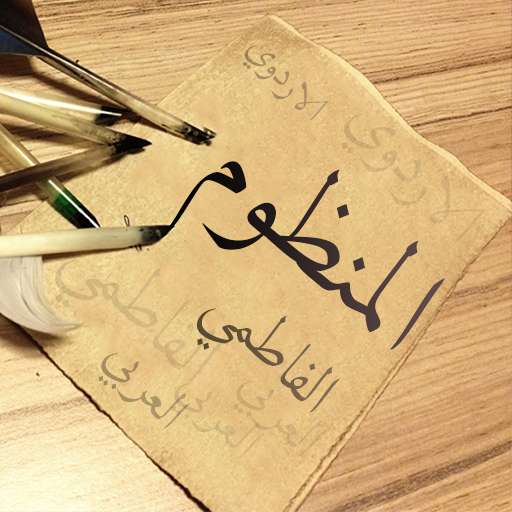 الاردوي
الاردوي
المنظوم
الفاطمي
الفاطمي
العربي
العربي
العربي